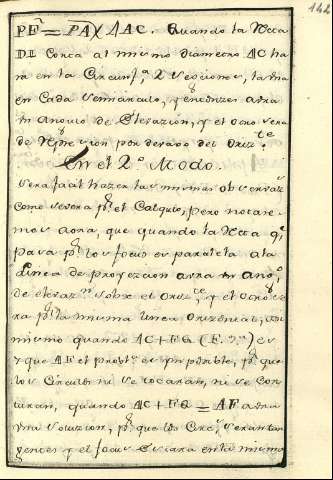 142
PF² = PA × AC. Quando la Recta
DI corta al mismo diametro AC ha
rá en la Circunf.ª 2 secciones, la una
en cada semicirculo, y entonces avrá
un angulo de Elevazion, y el otro será
de
En el 2º Modo.
Será facil hazer las mismas observaz.
como severa p.r el Calculo, pero notare
mos aora, que quando la Recta q.e
pasa p.r los focus es paralela a la
Linea de proyeccion avrá un Ang.º
de elevaz.n sobre el Orizte, y el otro se
rá p.r la misma linea Orizontal, asi
mismo quando AC + FG
y que AF el probl.ª es imposible, p.r que
los Circulos ni se tocaran, ni se cor
taran, quando AC + FG = AF avrá
una soluzion, p.r que los Circ.s seran tan
gentes y el focus estará en la misma